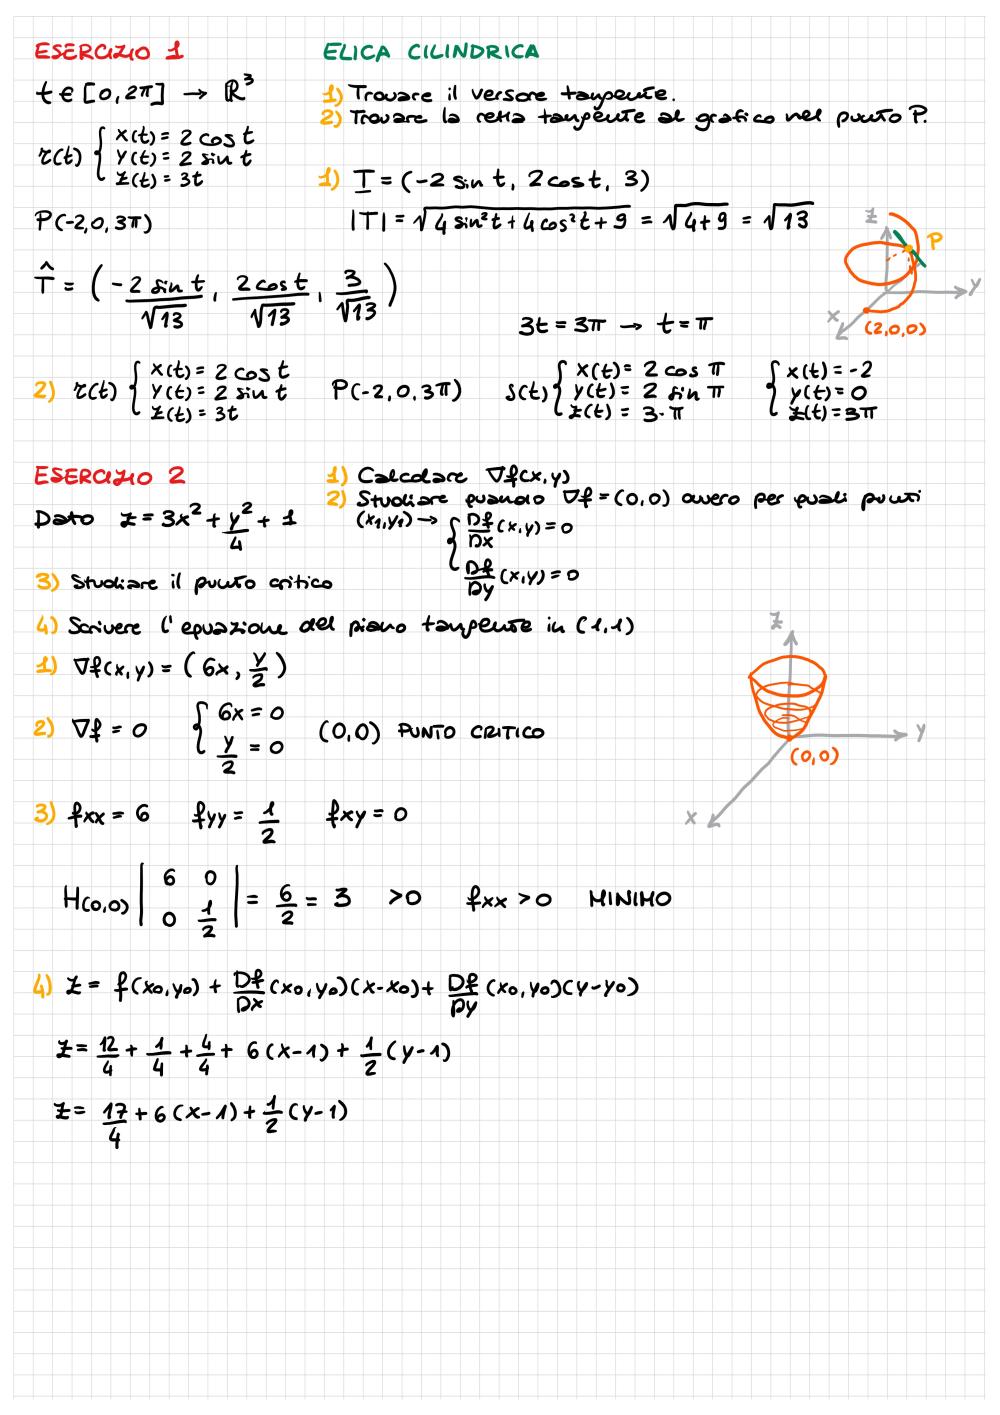 ESERCIZIO 1
ELICA CILINDRICA
t ∈ [0, 2π] → ℝ³
1) Trovare il versore tangente.
2) Trovare la retta tangente al grafico nel punto P.
r(t) { x(t) = 2 cos t
y(t) = 2 sin t
z(t) = 3t
P(-2,0,3π)
1) T = (-2 sin t, 2 cos t, 3)
|T| = √(4 sin²t + 4 cos²t + 9) = √(4+9) = √13
T̂ = (-2 sin t/√13, 2 cos t/√13, 3/√13)
z
P
y
x
(2,0,0)
3t = 3π → t = π
2) r(t) { x(t) = 2 cos t
y(t) = 2 sin t
z(t) = 3t
P(-2,0,3π)
s(t) { x(t) = 2 cos π
y(t) = 2 sin π
z(t) = 3·π
{ x(t) = -2
y(t) = 0
z(t) = 3π
ESERCIZIO 2
1) Calcolare ∇f(x,y)
2) Studiare quando ∇f = (0,0) ovvero per quali punti
(x1,y1) → { Df/Dx (x,y) = 0
Df/Dy (x,y) = 0
Dato z = 3x² + y²/4 + 1
3) Studiare il punto critico
4) Scrivere l'equazione del piano tangente in (1,1)
1) ∇f(x,y) = (6x, y/2)
2) ∇f = 0 { 6x = 0
y/2 = 0
(0,0) PUNTO CRITICO
z
y
(0,0)
x
3) fxx = 6 fyy = 1/2 fxy = 0
H(0,0) | 6 0
0 1/2 | = 6/2 = 3 >0 fxx >0 MINIMO
4) z = f(x0,y0) + Df/Dx (x0,y0)(x-x0) + Df/Dy (x0,y0)(y-y0)
z = 12/4 + 1/4 + 4/4 + 6(x-1) + 1/2(y-1)
z = 17/4 + 6(x-1) + 1/2(y-1)